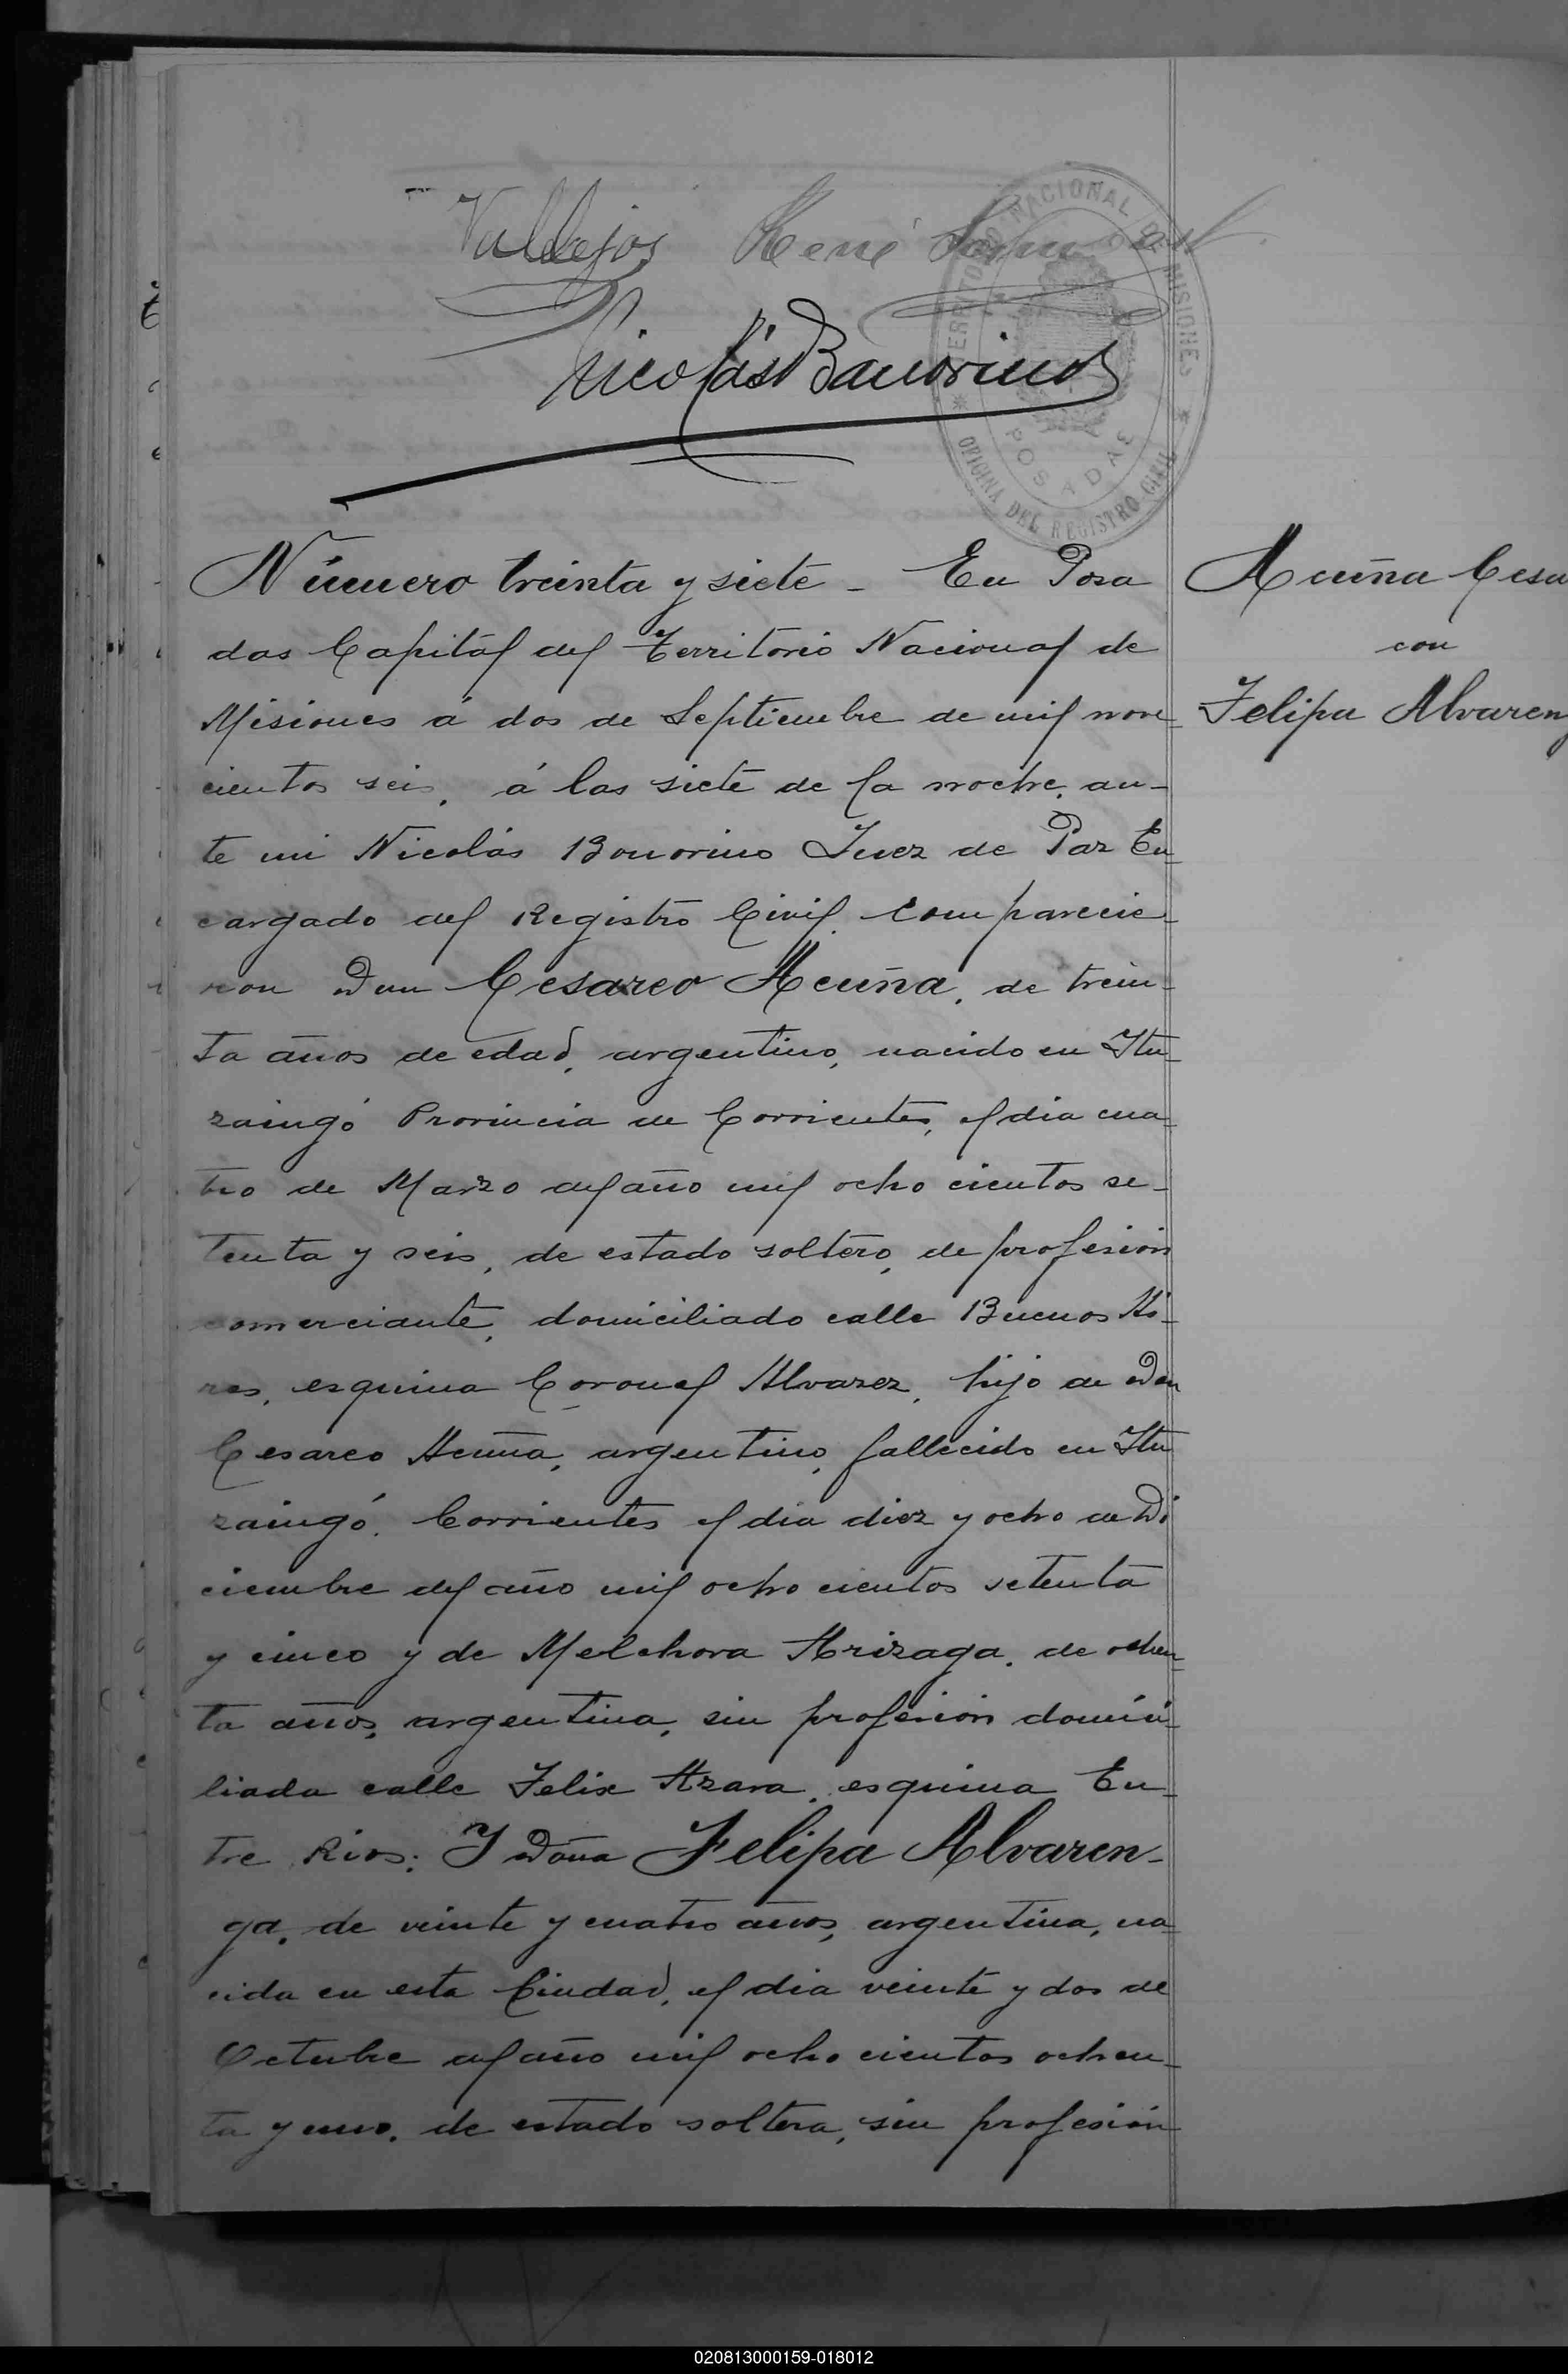 Vallejos René
Nicolás Bonorino
TERRITORIO NACIONAL DE MISIONES
POSADAS
OFICINA DEL REGISTRO CIVIL
Número treinta y siete - En Posa
das Capital del Territorio Nacional de
Misiones á dos de Septiembre de mil nove
cientos seis, á las siete de la noche, an-
te mi Nicolás Bonorino Juez de Paz En
cargado del Registro Civil, comparecie-
ron Don Cesareo Acuña, de trein-
ta años de edad, argentino, nacido en Itu-
zaingó Provincia de Corrientes, el dia cua-
tro de Marzo del año mil ocho cientos se-
tenta y seis, de estado soltero, de profesion
comerciante, domiciliado calle Buenos Ai-
res, esquina Coronel Alvarez, hijo de Don
Cesareo Acuña, argentino, fallecido en Itu
zaingó, Corrientes el dia diez y ocho de Di
ciembre del año mil ocho cientos setenta
y cinco y de Melchora Arizaga, de ochen-
ta años, argentina, sin profesion domici-
liada calle Felix Azara, esquina En-
tre Rios: Y Doña Felipa Alvaren-
ga, de veinte y cuatro años, argentina, na-
cida en esta Ciudad, el dia veinte y dos de
Octubre del año mil ocho cientos ochen-
ta y uno, de estado soltera, sin profesión
Acuña Cesa
con
Felipa Alvareng
020813000159-018012